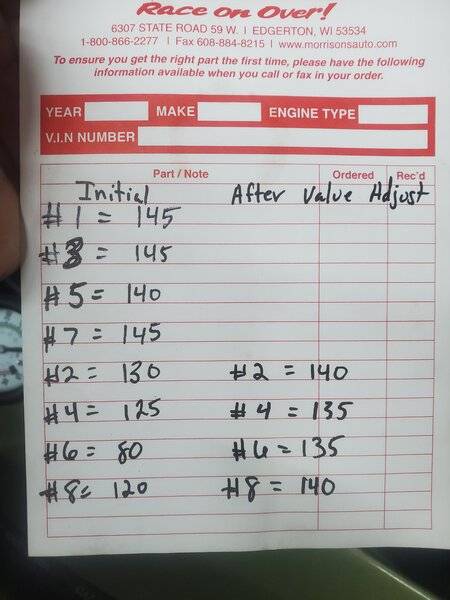 Race on Over!
6307 STATE ROAD 59 W. | EDGERTON, WI 53534
1-800-866-2277 | Fax 608-884-8215 | www.morrisonsauto.com
To ensure you get the right part the first time, please have the following
information available when you call or fax in your order.
YEAR MAKE ENGINE TYPE
V.I.N NUMBER
Part / Note Ordered Rec'd
Initial After Value Adjust
#1 = 145
#3 = 145
#5 = 140
#7 = 145
#2 = 130 #2 = 140
#4 = 125 #4 = 135
#6 = 80 #6 = 135
#8= 120 #8 = 140